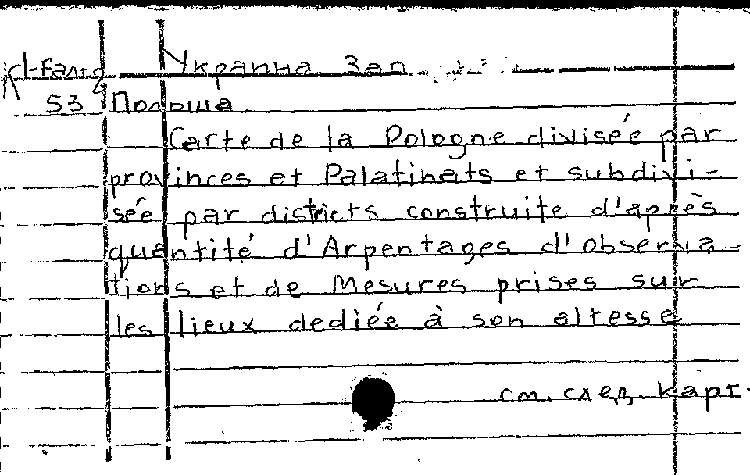 Украина Зап.
53 Польша.
Carte de la Pologne divisée par
provinces et Palatinats et subdivi-
sée par districts construite d'après
quantité d'Arpentages d'observa-
tions et de Mesures prises sur
les lieux dediée à son altesse
см. след. карт.